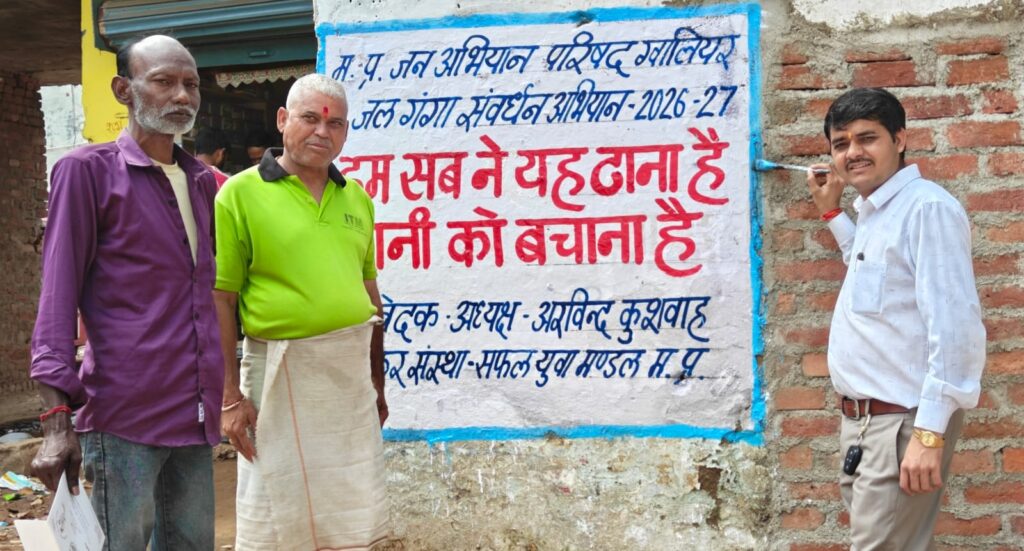 म. प्र. जन अभियान परिषद् ग्वालियर
जल गंगा संवर्धन अभियान-2026-27
हम सब ने यह ठाना है
पानी को बचाना है
निवेदक - अध्यक्ष - अरविन्द कुशवाह
संस्था - सफल युवा मण्डल म. प्र.
ITM